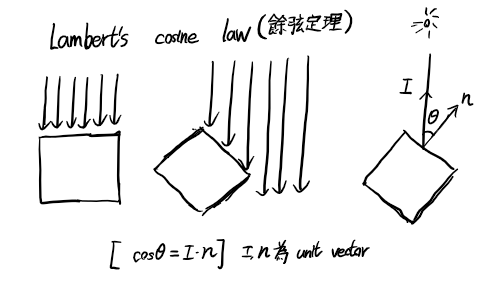 Lambert's cosine law (餘弦定理)
I
θ
n
[ cosθ = I·n ] I, n 為 unit vector